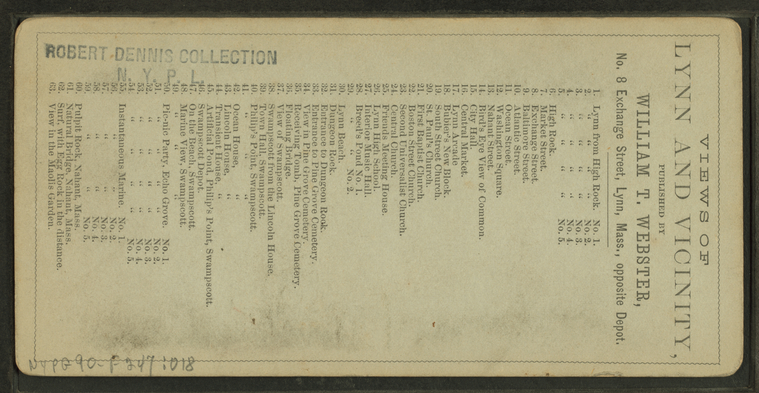 VIEWS OF
LYNN AND VICINITY,
PUBLISHED BY
WILLIAM T. WEBSTER,
No. 8 Exchange Street, Lynn, Mass., opposite Depot.
1. Lynn from High Rock. No. 1.
2. " " " " No. 2.
3. " " " " No. 3.
4. " " " " No. 4.
5. " " " " No. 5.
6. High Rock.
7. Market Street.
8. Exchange Street.
9. Baltimore Street.
10. Atlantic Street.
11. Ocean Street.
12. Washington Square.
13. Nahant Street.
14. Bird's Eye View of Common.
15. City Hall.
16. City Market.
17. Lynn Arcade.
18. Bubier's New Block.
19. South Street Church.
20. St. Paul's Church.
21. First Baptist Church.
22. Boston Street Church.
23. Second Universalist Church.
24. Central Church.
25. Friends Meeting House.
26. Lynn High School.
27. Interior Music Hall.
28. Breed's Pond No. 1.
29. " " No. 2.
30. Lynn Beach.
31. Dungeon Rook.
32. Entrance to Dungeon Rook.
33. Entrance to Pine Grove Cemetery.
34. View in Pine Grove Cemetery.
35. Receiving Tomb, Pine Grove Cemetery.
36. Floating Bridge.
37. View of Swampscott.
38. Swampscott from the Lincoln House.
39. Town Hall, Swampscott.
40. Philip's Point, Swampscott.
41. " " "
42. Ocean House, "
43. Lincoln House, "
44. Transient House, "
45. Artificial Pond, Philip's Point, Swampscott.
46. Swampscott Depot.
47. On the Beach, Swampscott.
48. Marine View, Swampscott.
49. " " "
50. Pic-nic Party, Echo Grove. No. 1.
51. " " " " No. 2.
52. " " " " No. 3.
53. " " " " No. 4.
54. " " " " No. 5.
55. Instantaneous Marine. No. 1.
56. " " No. 2.
57. " " No. 3.
58. " " No. 4.
59. " " No. 5.
60. Pulpit Rock, Nahant, Mass.
61. Natural Bridge, Nahant, Mass.
62. Surf, with Egg Rock in the distance.
63. View in the Maolis Garden.
ROBERT DENNIS COLLECTION
N. Y. P. L.
NYPG90-F247:018